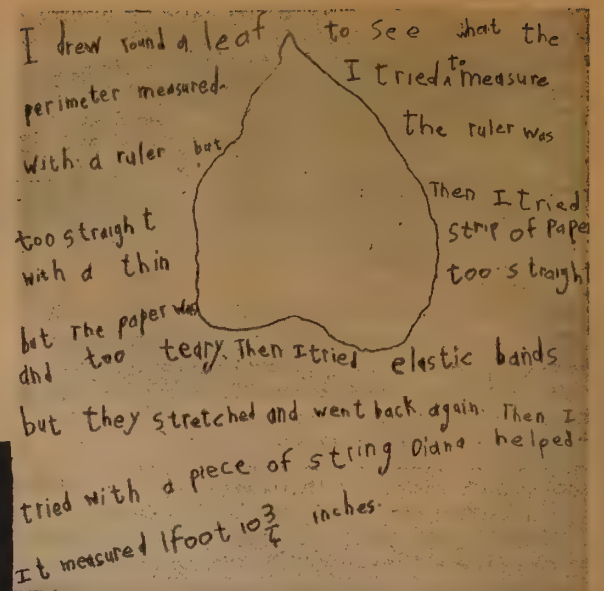 I drew round a leaf to see what the
perimeter measured. I tried to measure
with a ruler but the ruler was
too straight Then I tried
with a thin strip of paper
but The paper was too straight
and too teary. Then I tried elastic bands
but they stretched and went back again. Then I
tried with a piece of string Diana helped.
It measured 1foot 10 3/4 inches.